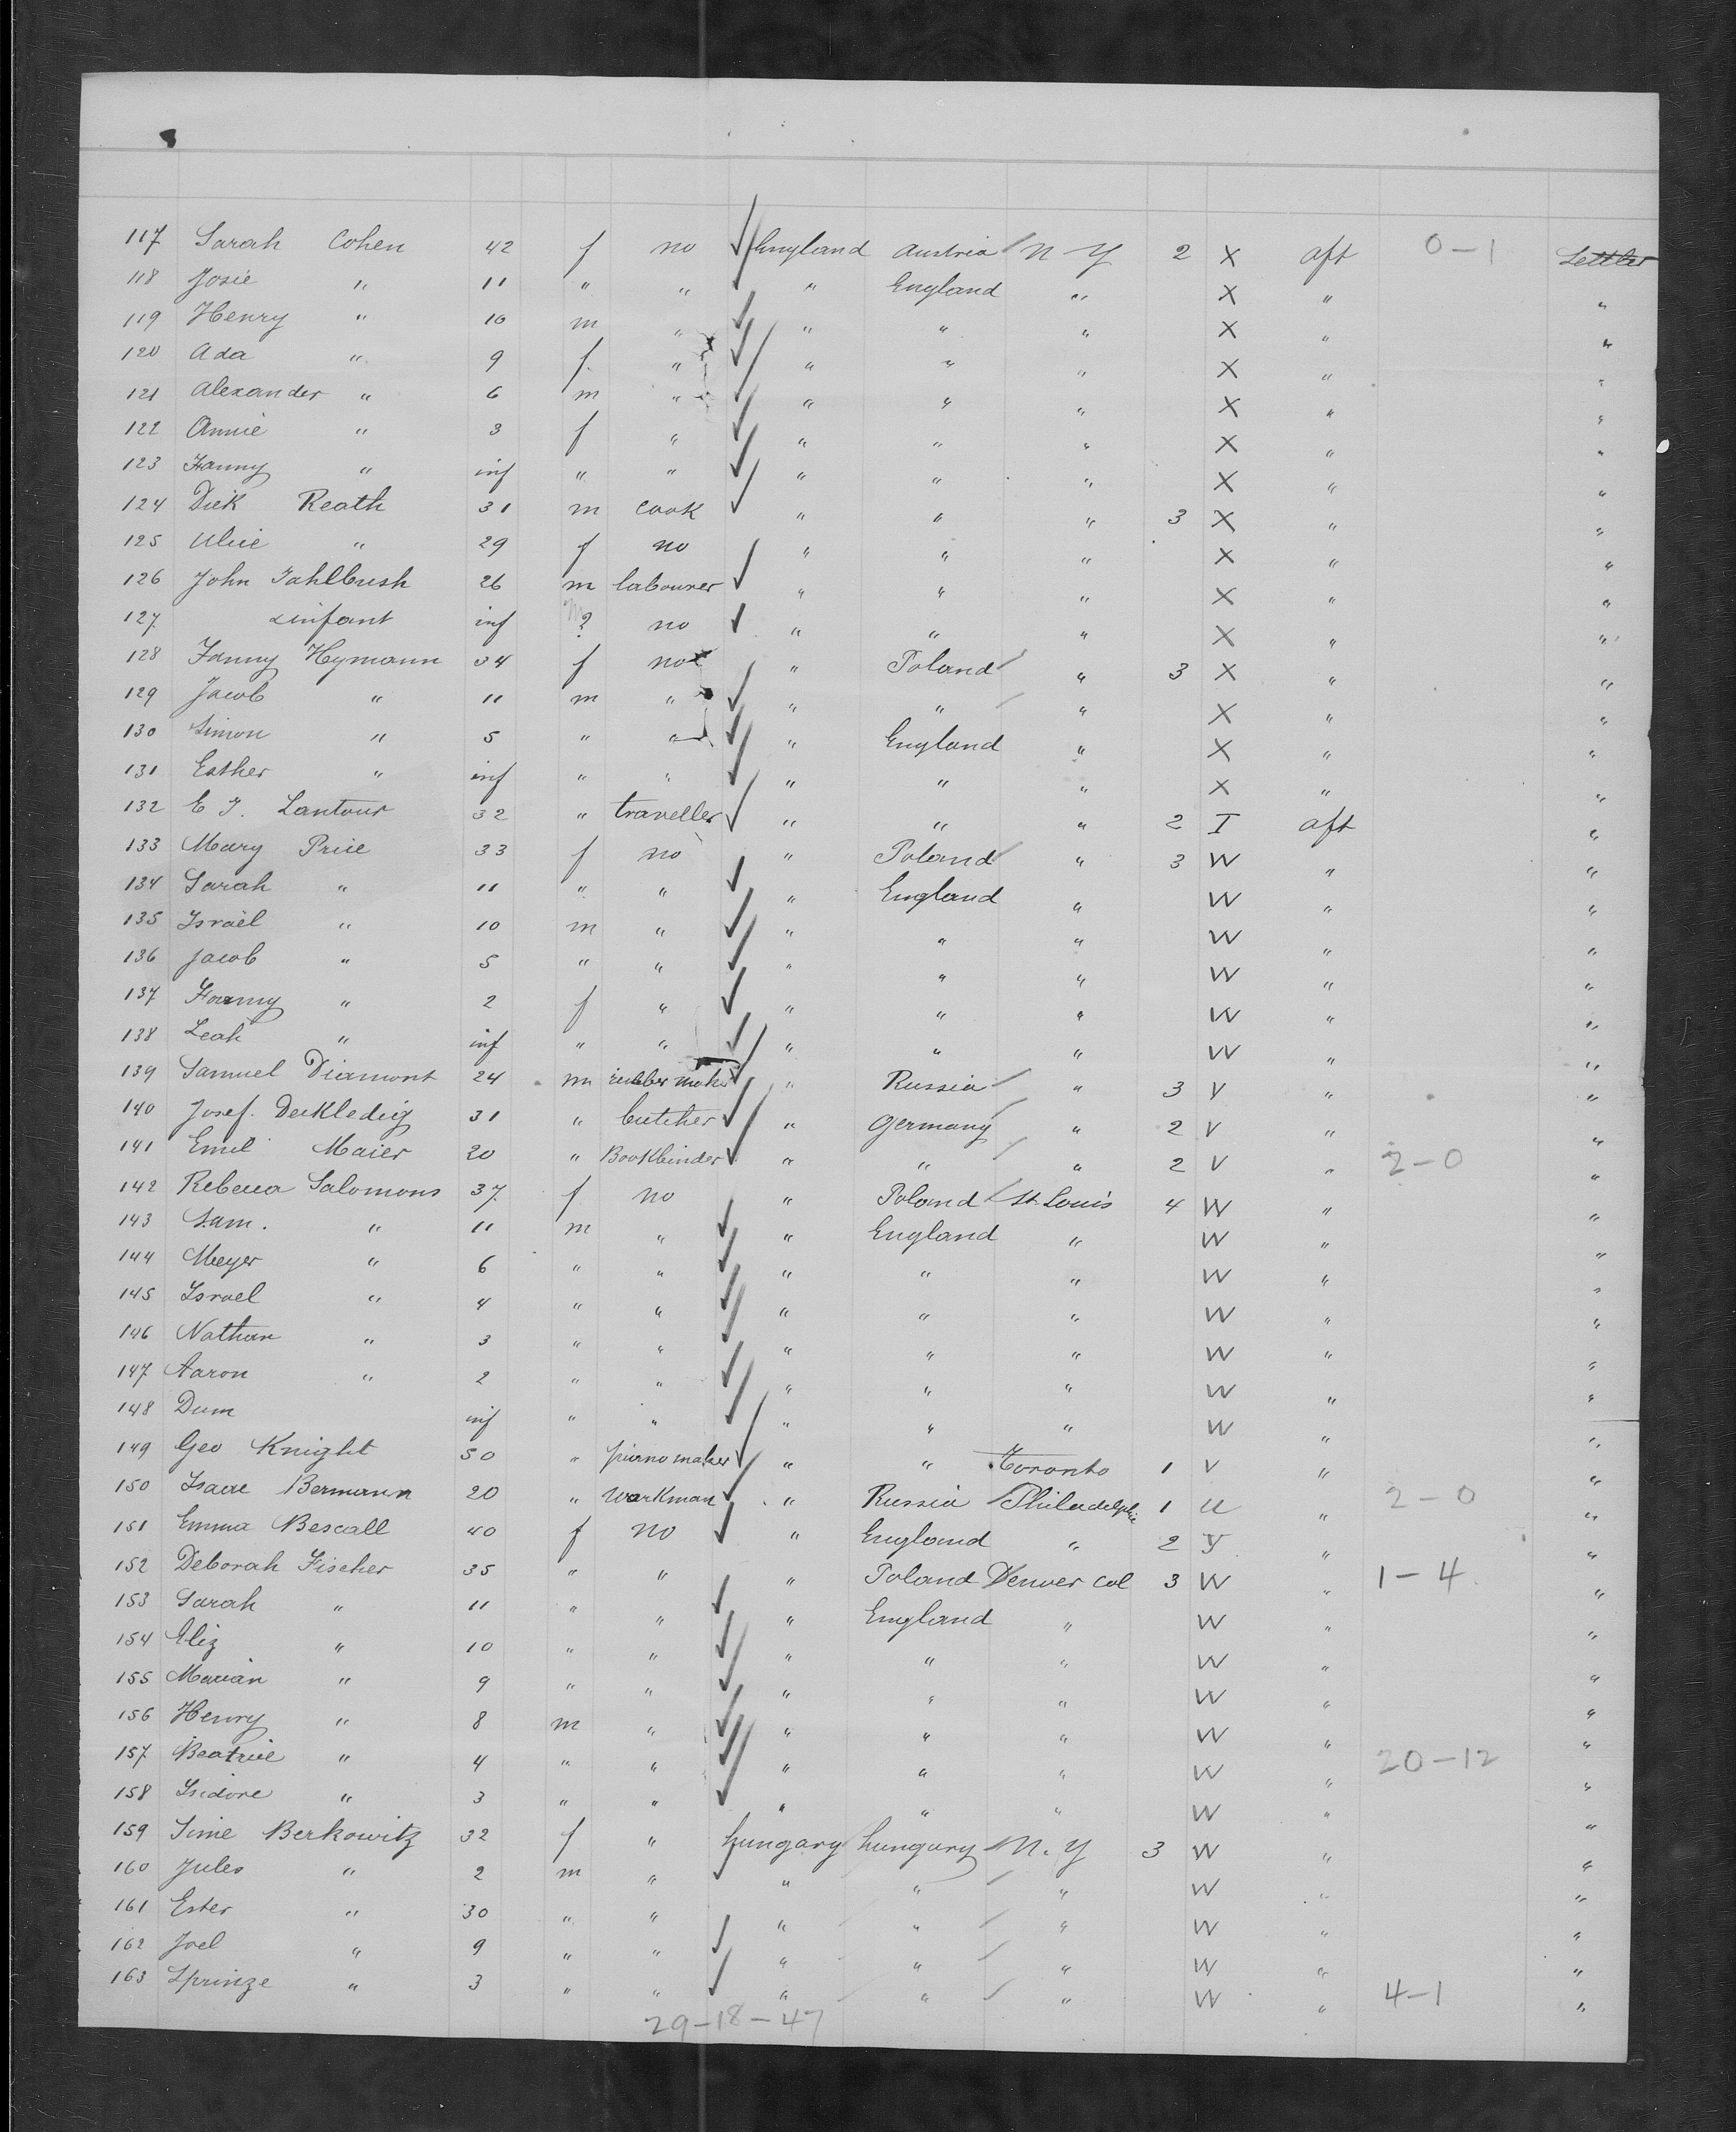 117 Sarah Cohen 42 f no England Austria N Y 2 X aft 0-1 Settler
118 Josie " 11 " " " England " X " "
119 Henry " 10 m " " " " X " "
120 Ada " 9 f " " " " X " "
121 Alexander " 6 m " " " " X " "
122 Annie " 3 f " " " " X " "
123 Fanny " inf " " " " " X " "
124 Dick Reath 31 m cook " " " 3 X " "
125 Alice " 29 f no " " " X " "
126 John Fahlbush 26 m labourer " " " X " "
127 infant inf ? no " " " X " "
128 Fanny Hymann 34 f no " Poland " 3 X " "
129 Jacob " 11 m " " " " X " "
130 Simon " 5 " " " England " X " "
131 Esther " inf " " " " " X " "
132 E Lantour 32 " traveller " " " 2 I aft "
133 Mary Price 33 f no " Poland " 3 W " "
134 Sarah " 11 " " " England " W " "
135 Israel " 10 m " " " " W " "
136 Jacob " 5 " " " " " W " "
137 Fanny " 2 f " " " " W " "
138 Leah " inf " " " " " W " "
139 Samuel Diamont 24 m rubber maker " Russia " 3 V " "
140 Josef. Deckledig 31 " butcher " Germany " 2 V " "
141 Emil Maier 20 " Bookbinder " " " 2 V " 2-0 "
142 Rebecca Salomons 37 f no " Poland St. Louis 4 W " "
143 Sam. " 11 m " " England " W " "
144 Meyer " 6 " " " " " W " "
145 Israel " 4 " " " " " W " "
146 Nathan " 3 " " " " " W " "
147 Aaron " 2 " " " " " W " "
148 Dum inf " " " " " W " "
149 Geo Knight 50 " piano maker " " Toronto 1 V " "
150 Isaac Bermann 20 " workman " Russia Philadelphia 1 U " 2-0 "
151 Emma Bescall 40 f no " England " 2 " "
152 Deborah Fischer 35 " " " Poland Denver Col 3 W " 1-4 "
153 Sarah " 11 " " " England " W " "
154 Eliz " 10 " " " " " W " "
155 Marian " 9 " " " " " W " "
156 Henry " 8 m " " " " W " "
157 Beatrice " 4 " " " " " W " 20-12 "
158 Isidore " 3 " " " " " W " "
159 Sime Berkowitz 32 f " hungary hungary N. Y 3 W " "
160 Jules " 2 m " " " " W " "
161 Ester " 30 " " " " " W " "
162 Joel " 9 " " " " " W " "
163 Sprinze " 3 " " " " " W " 4-1 "
29-18-47